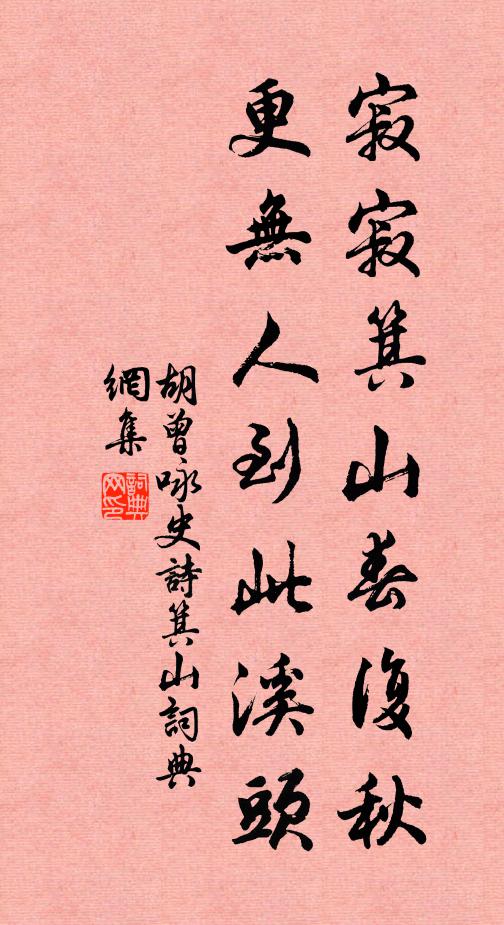 寂寂箕山春復秋
更無人到此溪頭
胡曾咏史詩箕山詞典
網集
詞典
网印